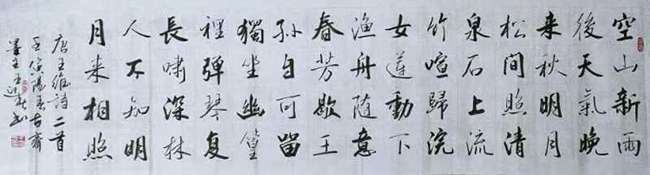 空山新雨
後天氣晚
来秋明月
松間照清
泉石上流
竹喧歸浣
女蓮動下
漁舟随意
春芳歇王
孫自可留
獨坐幽篁
裡彈琴复
長嘯深林
人不知明
月来相照
唐王維詩二首